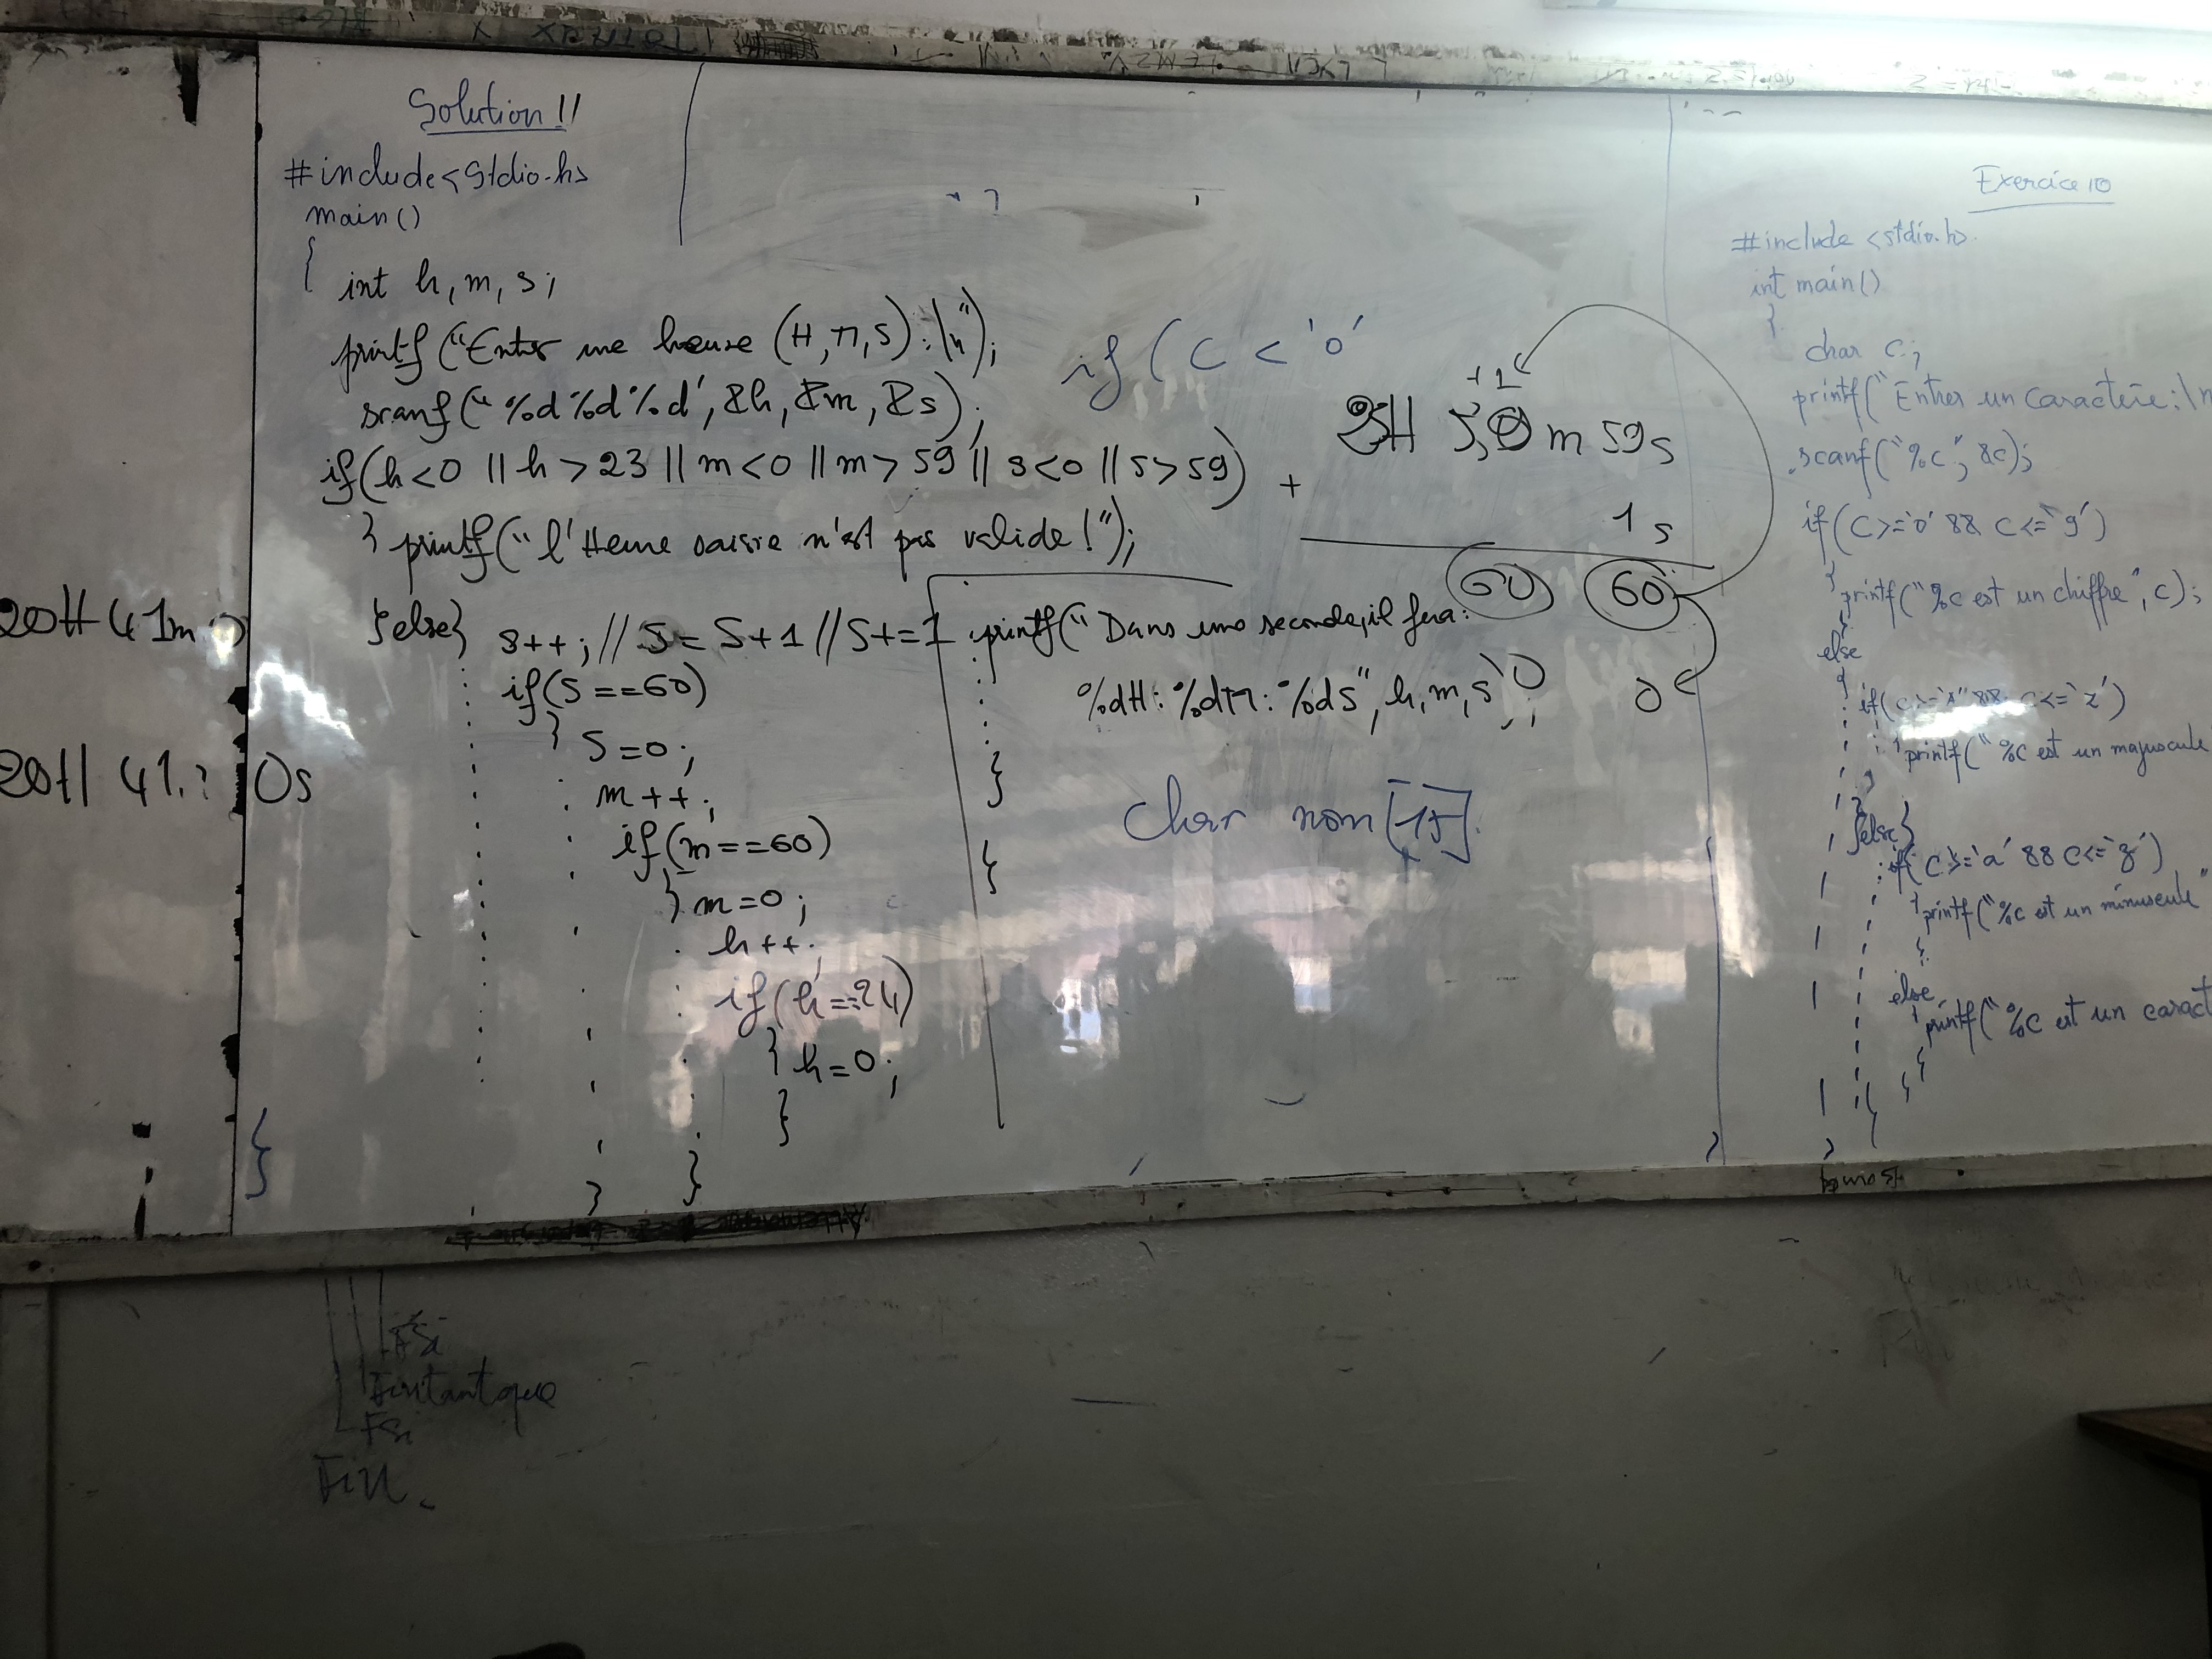 Solution 11
#include<Stdio.h>
main()
{ int h, m, s;
printf("Entrer une heure (H,M,S):\n");
scanf("%d%d%d",&h,&m,&s);
if(h<0 || h>23 || m<0 || m>59 || s<0 || s>59)
{ printf("l'Heure saisie n'est pas valide!");
}else{
s++; // S=S+1 // S+=1
if(S==60)
{
S=0;
m++;
if(m==60)
{ m=0;
h++;
if(h==24)
{ h=0;
}
}
}
printf("Dans une seconde,il fera:
%dH:%dM:%dS",h,m,s);
}
}
20H 41m
20H 41
0s
}
if(C<'0'
+1
m 59s
+ 1s
60 60
0
char nom[15]
Exercice 10
#include <stdio.h>
int main()
{
char c;
printf("Entrer un caractère:\n
scanf("%c", &c);
if(C>='0' && C<='9')
{ printf("%c est un chiffre", c);
}
else
{
&& c<='z')
{ printf("%c est un majuscule
}
}else{
if(C>='a' && C<='z')
{ printf("%c est un minuscule"
}
else
{ printf("%c est un caract
}
}
FSi
FSi
Fin.